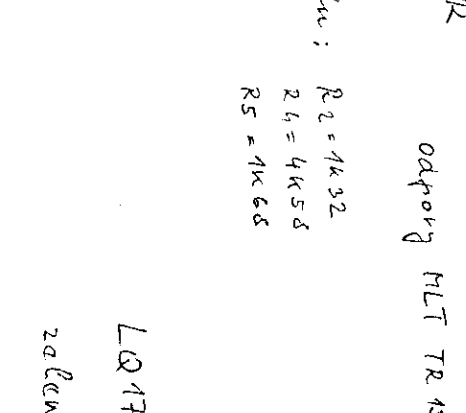 R
odpory MLT TR 15
R2 = 1k32
R4 = 4k58
R5 = 1k68
LQ17